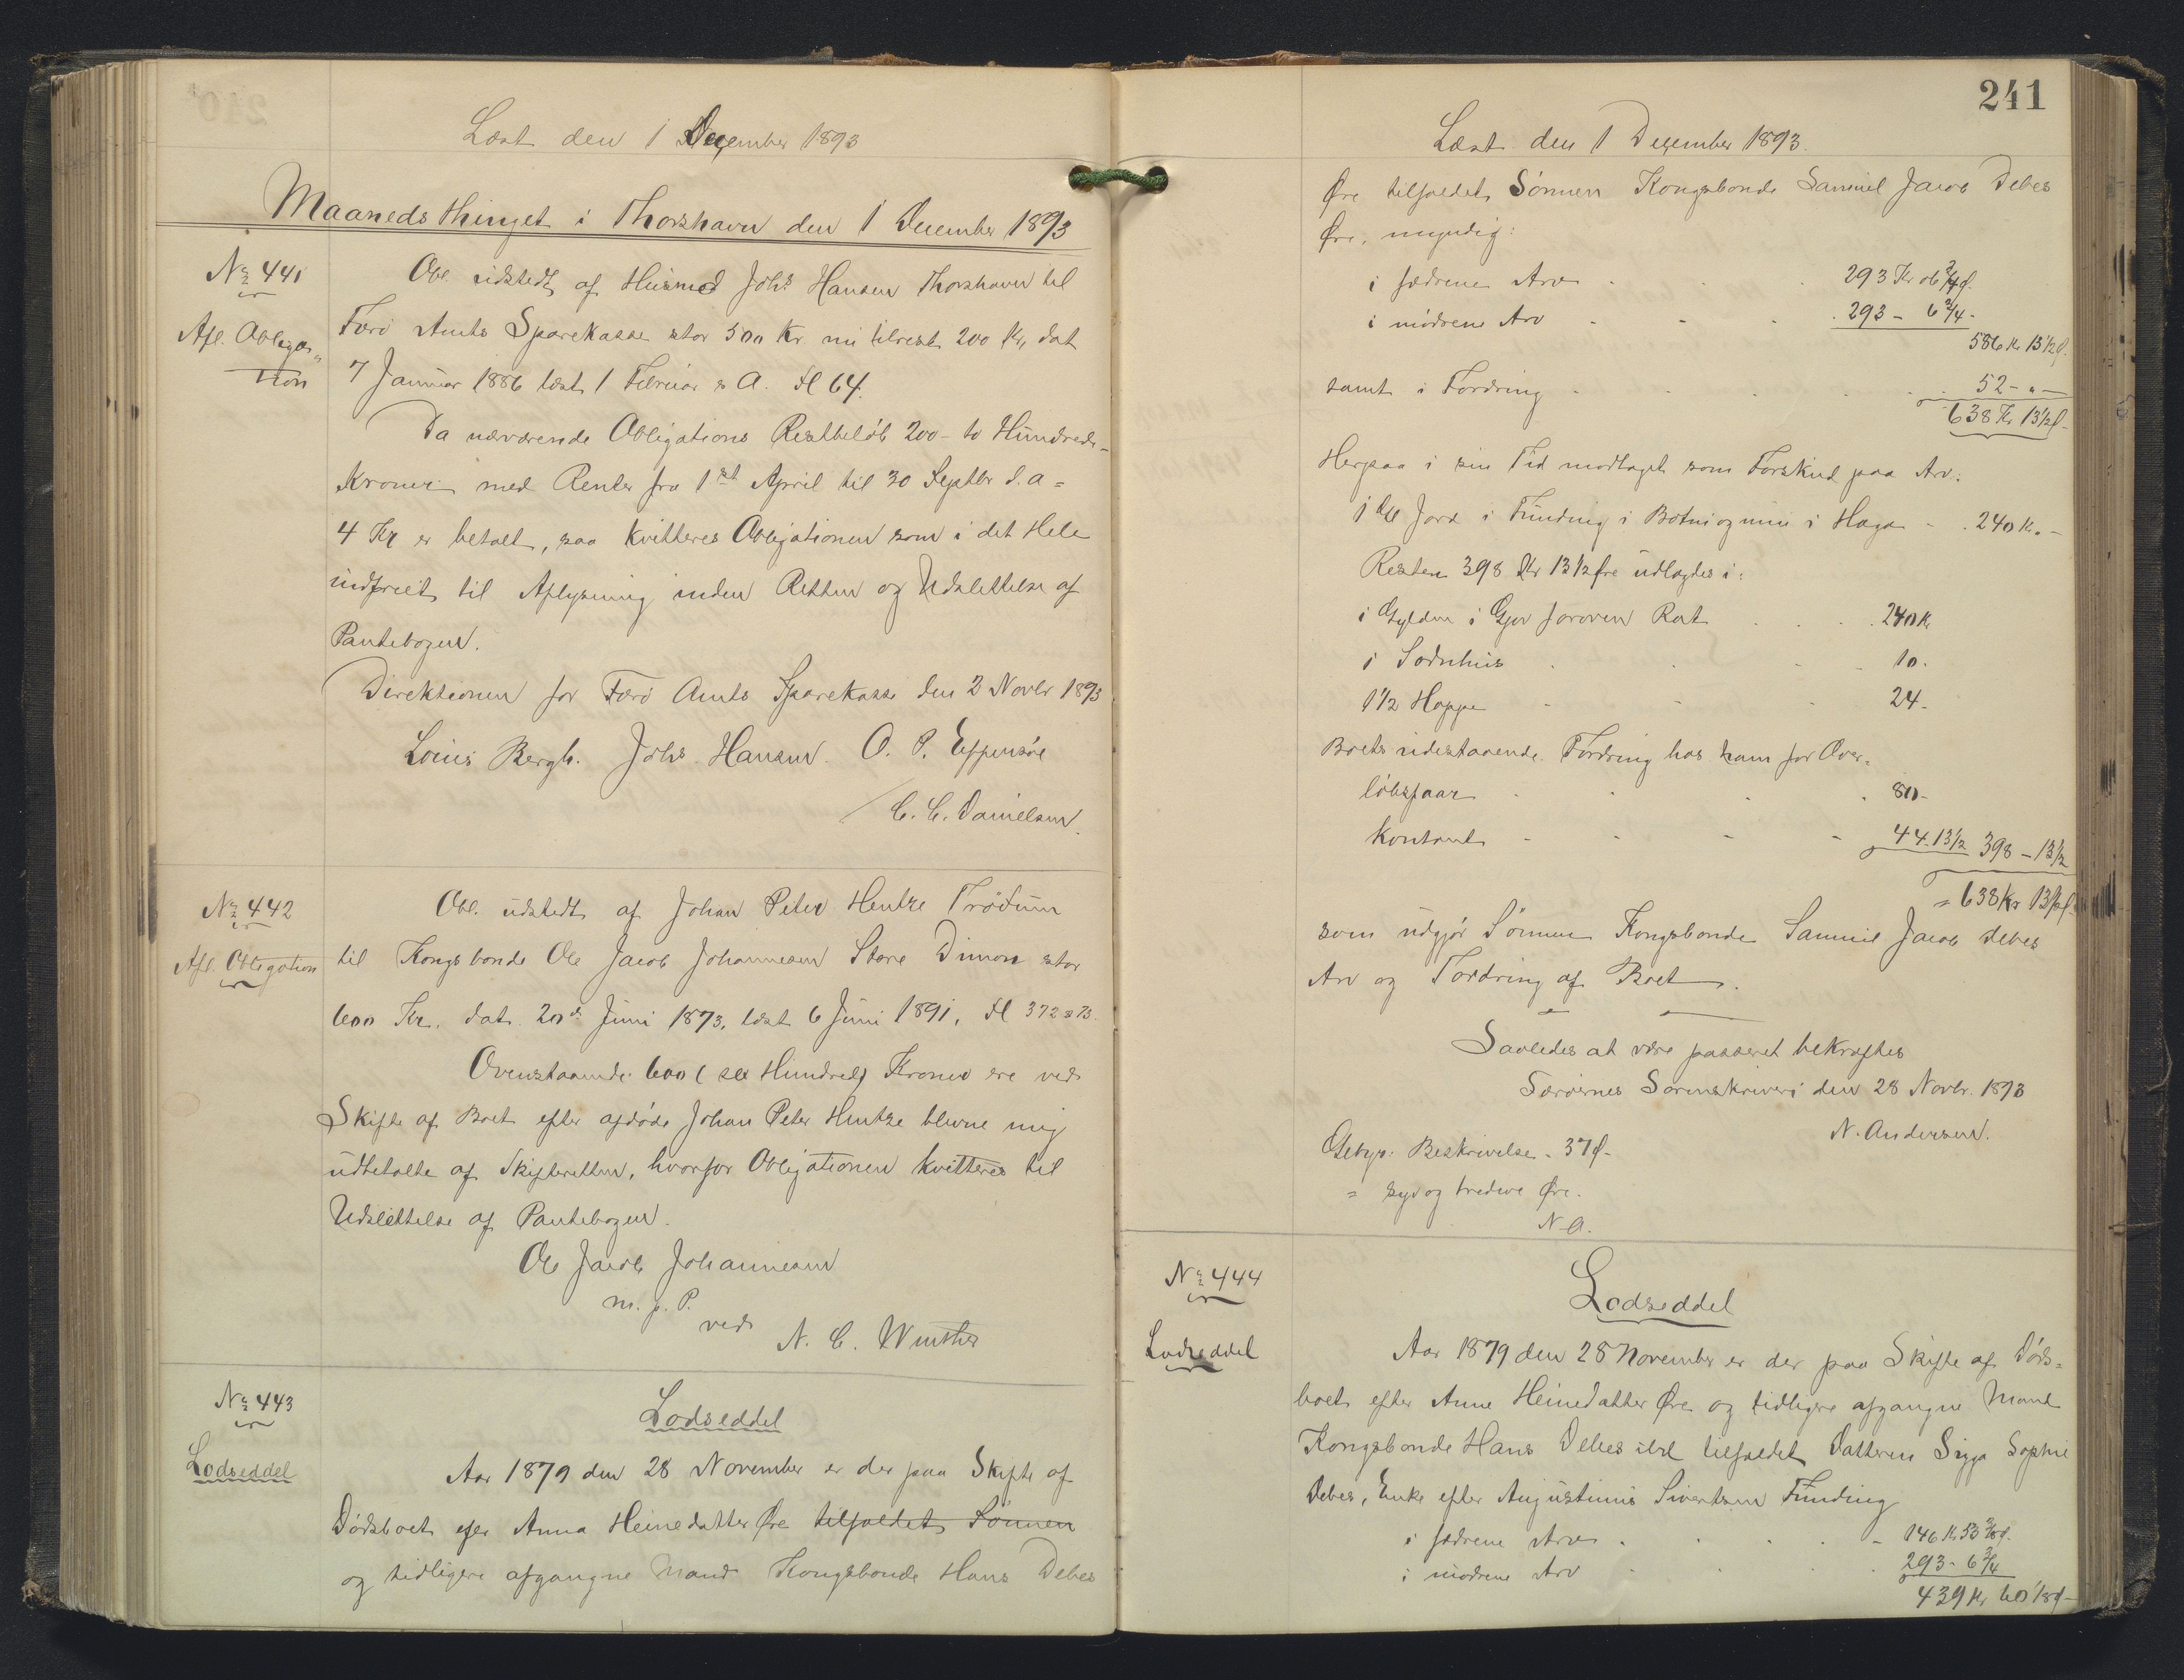 Læst den 1 December 1893
Maanedsthinget i Thorshavn den 1 December 1893
No 441
Afl. Obliga-
tion
Obl. udstedt af Husmd Johs Hansen Thorshavn til
Færø Amts Sparekasse stor 500 Kr nu tilrest 200 Kr, dat
7 Januar 1886 læst 1 Februar s A. Fl 64.
Da nærværende Obligations Restbeløb 200 - to Hundrede
Kroner med Renter fra 1st April til 30 Septbr d. a =
4 Kr er betalt, saa kvitteres Obligationen som i det Hele
indfriet til Aflysning inden Retten og Udslettelse af
Pantebogen.
Direktionen for Færø Amts Sparekasse den 2 Novbr 1893
Louis Bergh. Johs Hansen. O. P. Effersøe
C. C. Danielsen.
No 442
Afl. Obligation
Obl. udstedt af Johan Peter Hentze Trødum
til Kongsbonde Ole Jacob Johannesen Store Dimon stor
600 Kr. dat. 20d Juni 1873, læst 6 Juni 1891, Fl 372 & 73.
Ovenstaaende 600 (sex Hundrede) Kroner ere ved
Skifte af Boet efter afdøde Johan Peter Hentze blevne mig
udbetalte af Skifteretten, hvorfor Obligationen kvitteres til
Udslettelse af Pantebogen.
Ole Jacob Johannesen
m. f. P.
ved
N. C. Winther
No 443
Lodseddel
Lodseddel
Aar 1879 den 28 November er der paa Skifte af
Dødsboet efter Anna Heinedatter Øre tilfaldet Sønnen
og tidligere afgangne Mand Kongsbonde Hans Debes
241
Læst den 1 December 1893.
Øre tilfaldet Sønnen Kongsbonde Samuel Jacob Debes
Øre, myndig:
i fædrene Arv 293 Kr 06 3/4 Ø.
i mødrene Arv 293 - 6 3/4 -
586 Kr 13 1/2 Ø.
samt i Fordring 52 - " -
638 Kr 13 1/2 Ø
Herpaa i sin Tid modtaget som Forskud paa Arv:
1 Gl Jord i Funding i Haga 240 Kr. -
Resten 398 Kr 13 1/2 Øre udlagdes i:
i Gylden i Gjov 240 K
i Sodnhus 10.
1 1/2 Hoppe 24 -
Boets udestaaende Fordring hos ham for Over-
løbsfaar 80 -
Kontant 44. 13 1/2 398 - 13 1/2
= 638 Kr 13 1/2 Ø
som udgjør Sønnen Kongsbonde Samuel Jacob Debes
Arv og Fordring af Boet.
Saaledes at være passeret bekræftes
Færøernes Sorenskriveri den 28 Novbr. 1893
N. Andersen.
Gebyr: Beskrivelse - 37 Ø -
= syv og tredive Øre.
N. A.
No 444
Lodseddel
Lodseddel
Aar 1879 den 28 November er der paa Skifte af Døds-
boet efter Anne Heinedatter Øre og tidligere afgangne Mand
Kongsbonde Hans Debes ibd tilfaldet Datteren Sigga Sophie
Debes, Enke efter Augustinus Sivertsen Funding
i fædrene Arv 146 Kr 53 3/8 Ø.
i mødrene Arv 293 - 6 3/4
439 Kr 60 1/8 Ø -